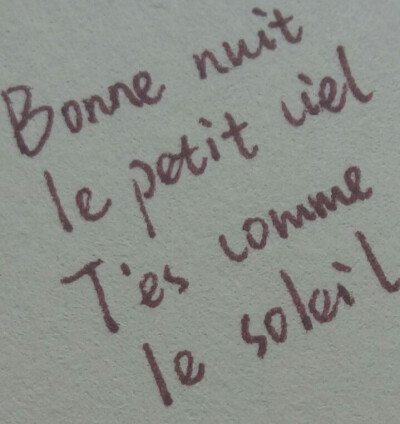 Bonne nuit
le petit ciel
T'es comme
le soleil